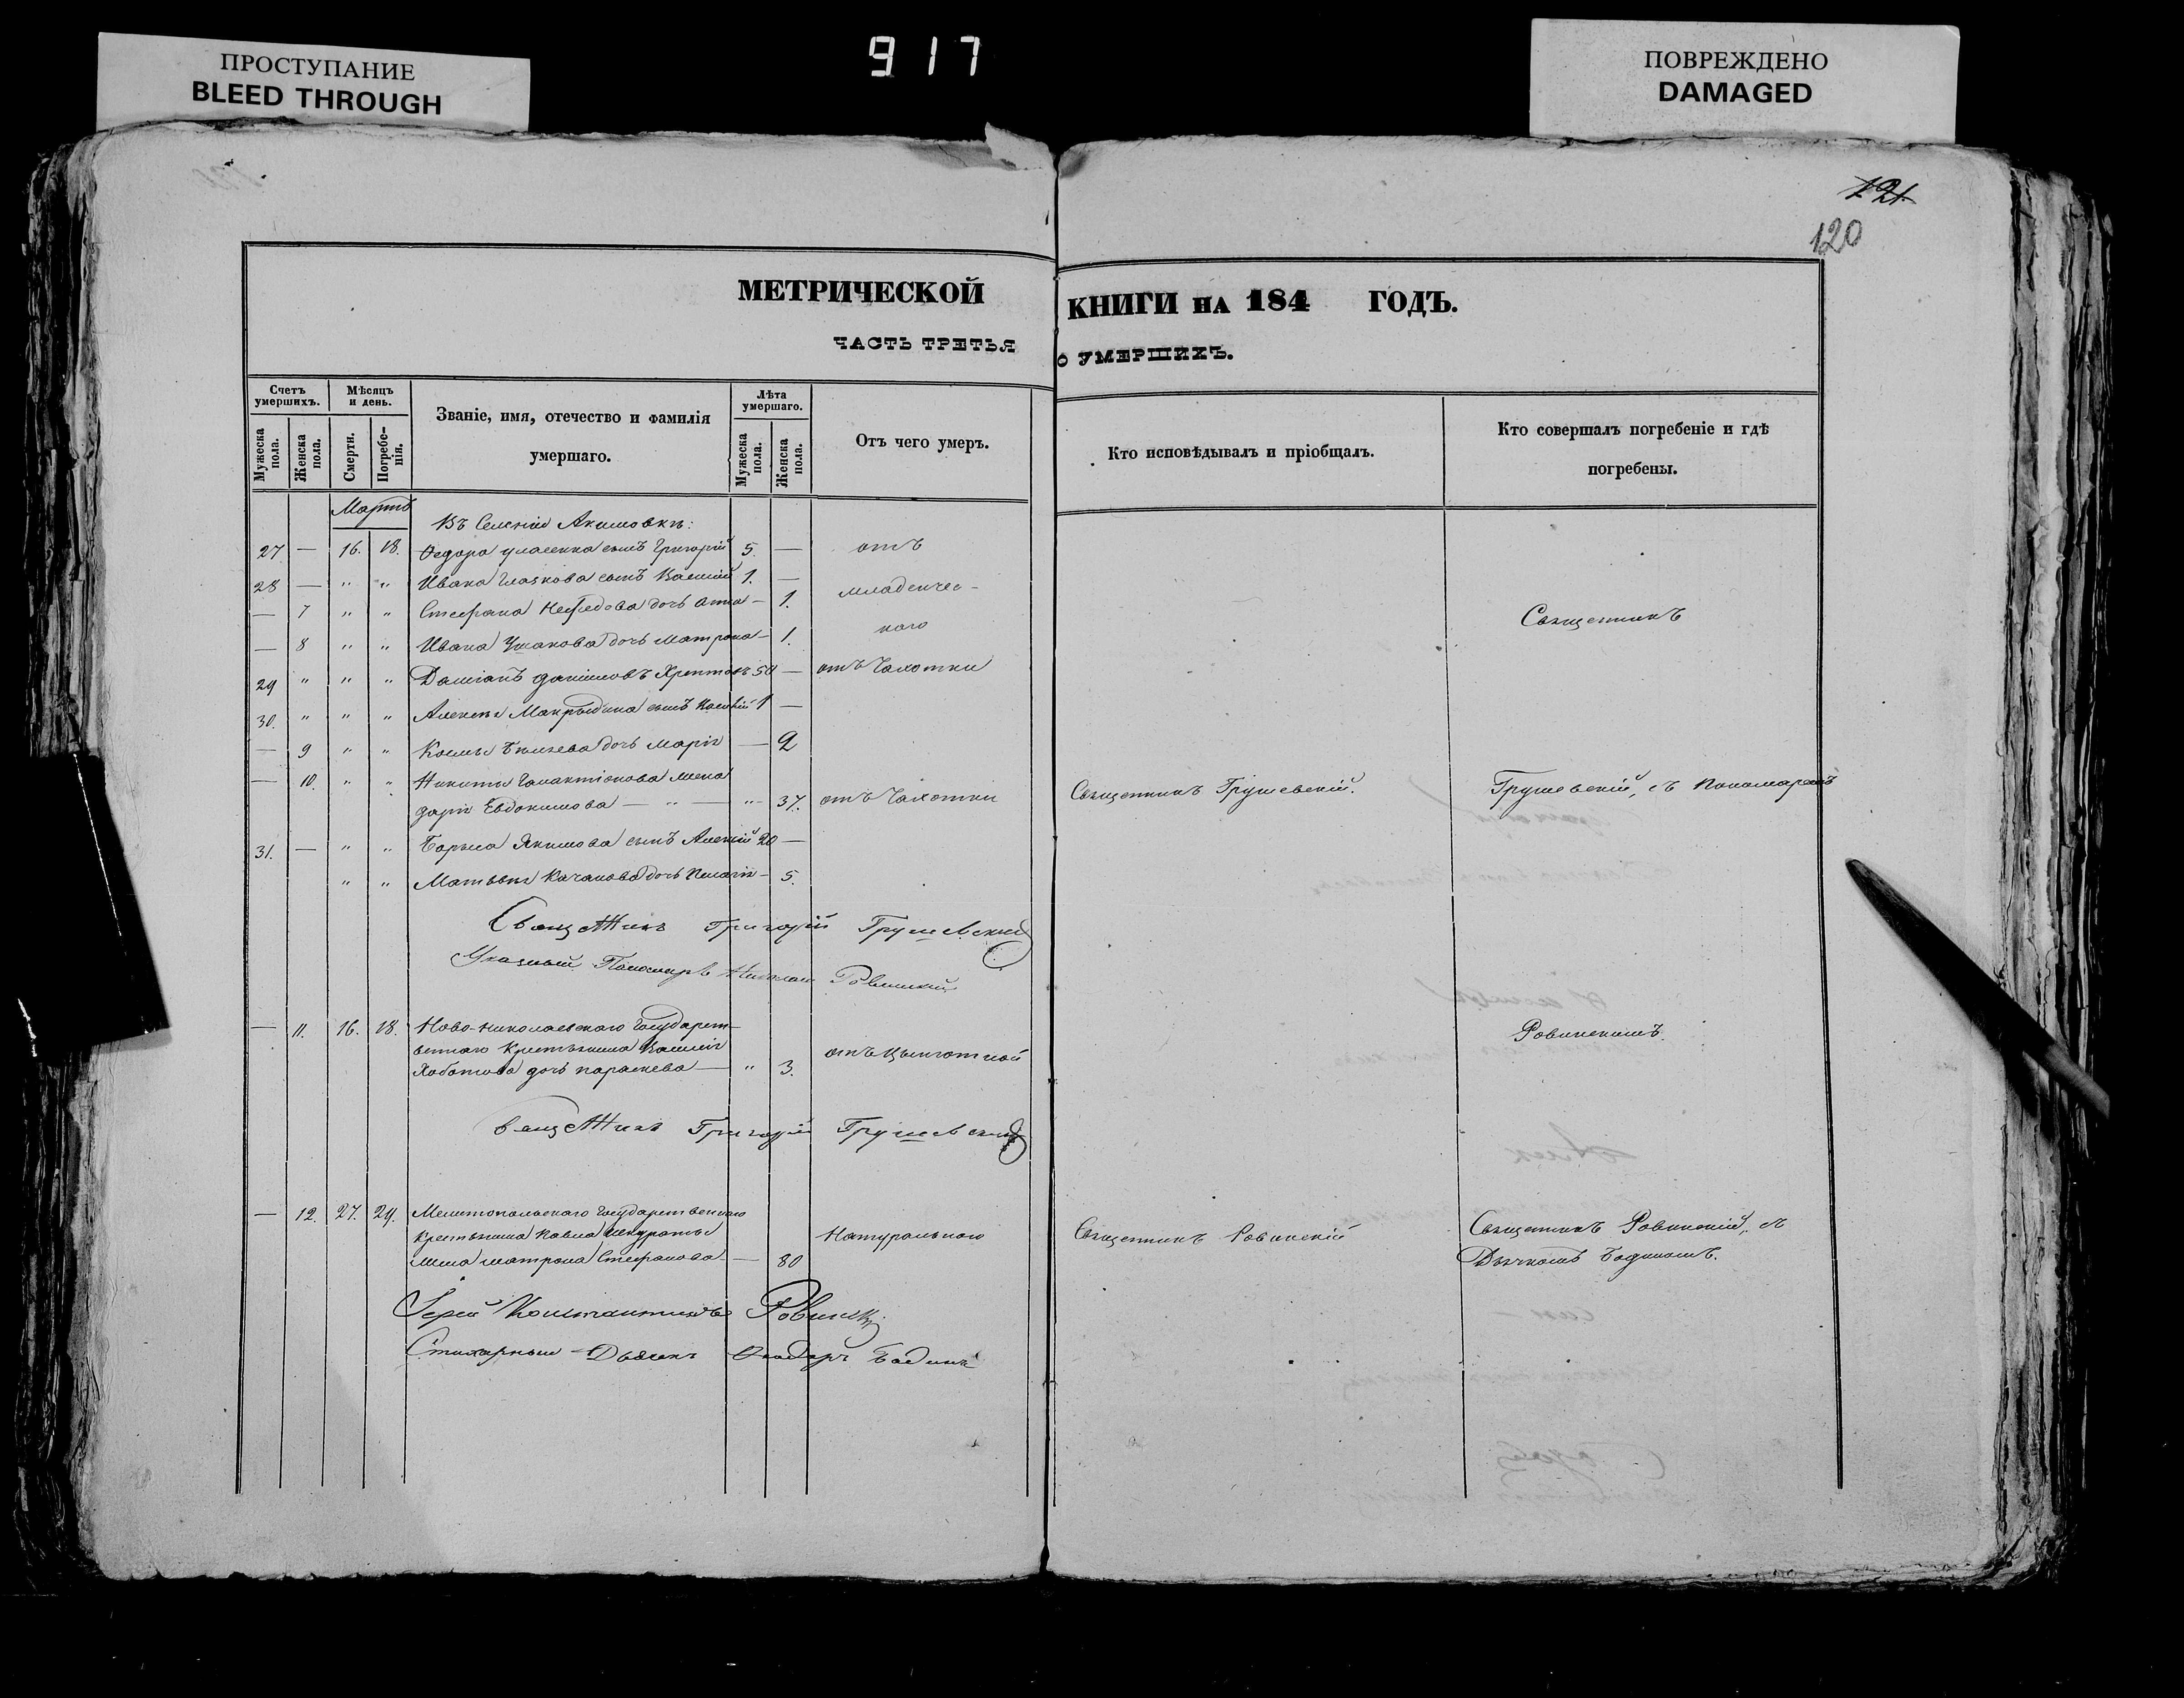 ПРОСТУПАНИЕ
BLEED THROUGH
917
ПОВРЕЖДЕНО
DAMAGED
121
120
МЕТРИЧЕСКОЙ КНИГИ НА 184 ГОДЪ.
ЧАСТЬ ТРЕТЬЯ О УМЕРШИХЪ.
Счетъ умершихъ.
Мужеска пола.
Женска пола.
Мѣсяцъ и день.
Смерти.
Погребенія.
Званіе, имя, отечество и фамилія
умершаго.
Лѣта умершаго.
Мужеска пола.
Женска пола.
Отъ чего умеръ.
Кто исповѣдывалъ и пріобщалъ.
Кто совершалъ погребеніе и гдѣ
погребены.
Мартъ
Въ Селеніи Акимовкѣ:
27 — 16. 18. Ѳедора сынъ Григорій 5. — отъ
28 — " " Ивана Глазкова сынъ Василій 1. — младенчес-
— 7 " " Стефана Нефедова дочь Анна — 1.
— 8 " " Ивана Ушакова дочь Матрона — 1. каго
Священникъ
29 " " " Даміанъ Даниловъ 50 — отъ Чахотки
30. " " " Алексѣя сынъ 1 —
— 9 " " Космы дочь Марія — 2
— 10. " " Никиты Галактіонова жена
Дарія Евдокимова — " — " 37. отъ Чахотки Священникъ Грушевскій. Грушевскій, съ Пономаремъ
31. — " " Якимова сынъ Алексій 20 —
" " Матвѣя Качанова дочь Пелагія — 5.
Священникъ Григорій Грушевскій
Указный Пономарь Николай Ровинскій
— 11. 16. 18. Ново-Николаевскаго Государст-
веннаго Крестьянина Василія Ровинскимъ.
Хоботова дочь Параскева — " 3. отъ Цынготной
Священникъ Григорій Грушевскій
— 12. 27. 29. Мелитопольскаго Государственнаго
Крестьянина Павла жена Матрона Стефанова — 80 Натурального Священникъ Ровинскій Священникъ Ровинскій, съ
Дьячкомъ Бодинымъ.
Іерей Константинъ Ровинскій
Стихарный Дьячекъ Ѳеодоръ Бодинъ